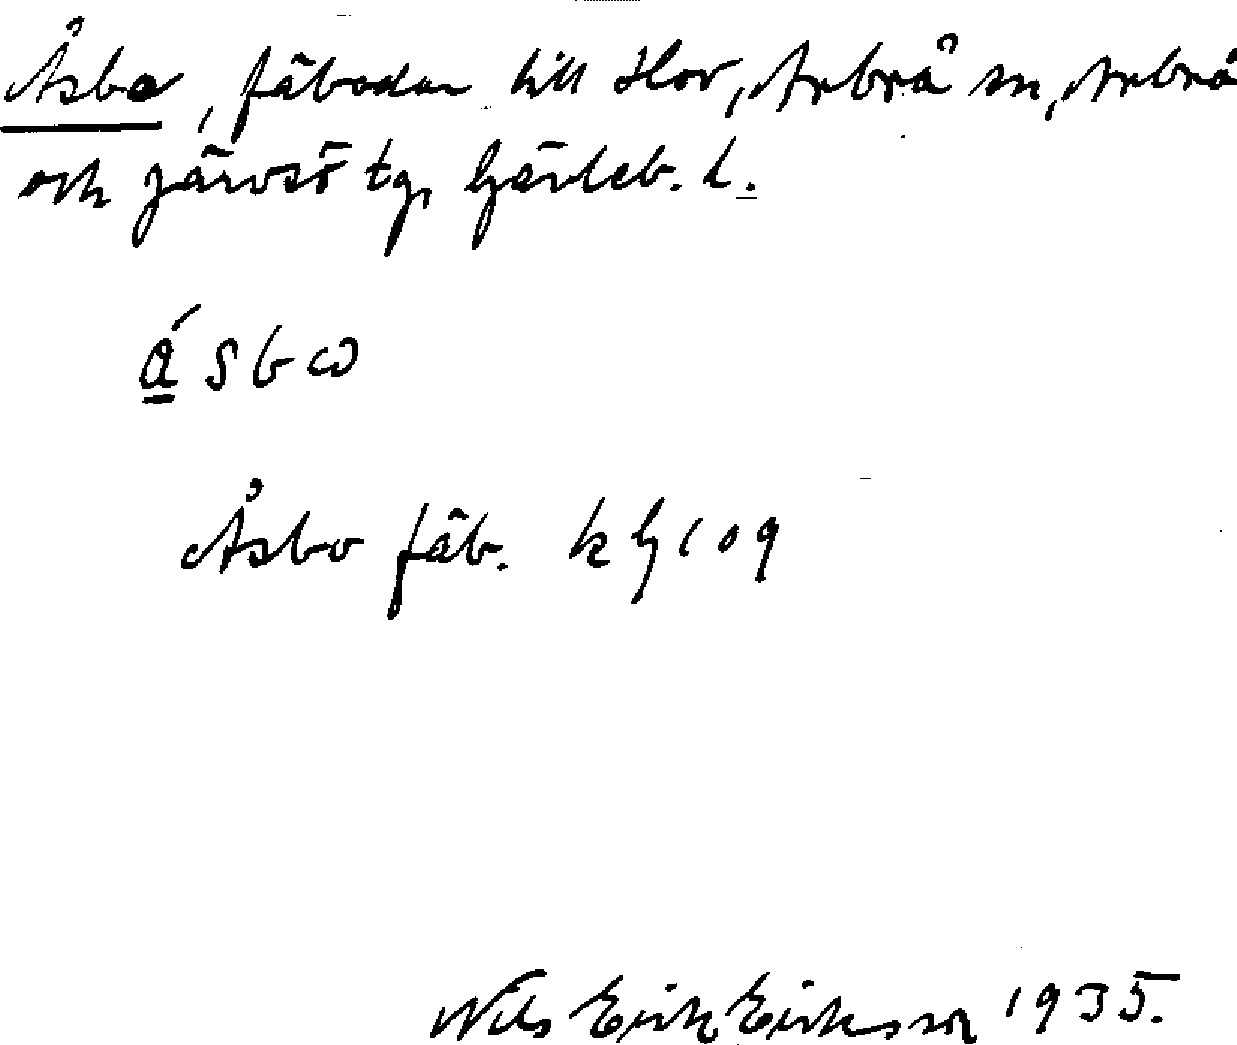 Åsbo, fäbodar till Hov, Arbrå sn, Arbrå
och Järvsö tg, Gävleb. l.
ásbω
Åsbo fäb. kG 109
Nils Erik Eriksson 1935.